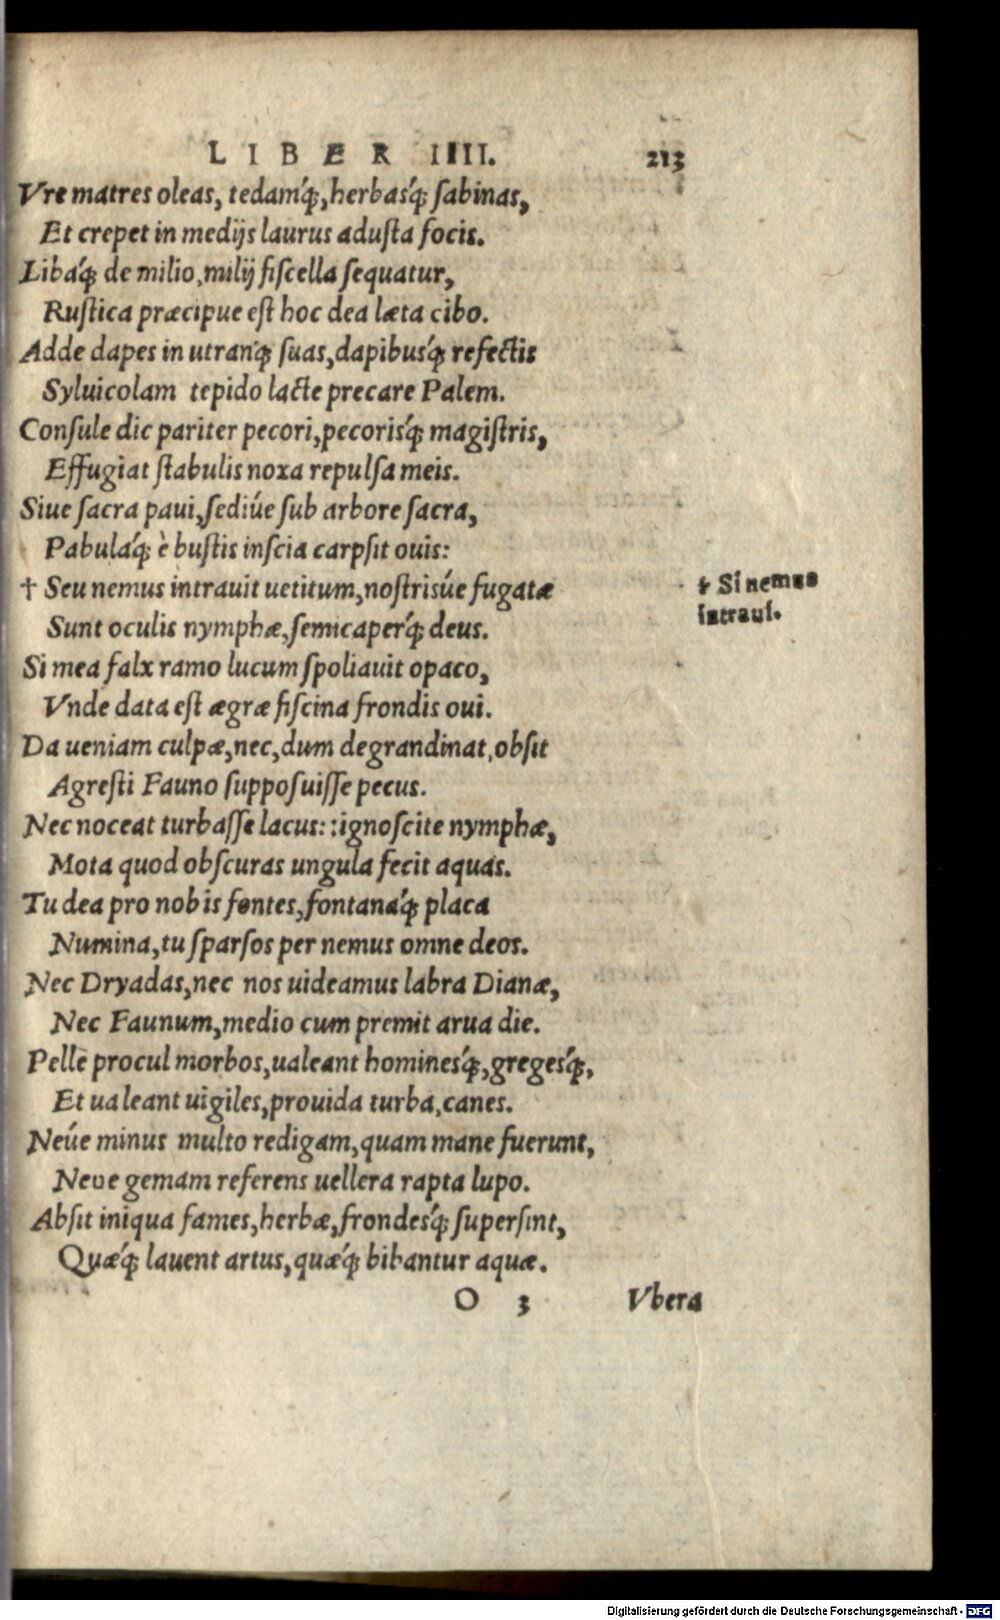 LIBER IIII. 213
Vre matres oleas, tedamq́;, herbasq́; ſabinas,
Et crepet in medijs laurus aduſta focis.
Libaq́; de milio, milij fiſcella ſequatur,
Ruſtica præcipue eſt hoc dea læta cibo.
Adde dapes in utranq; ſuas, dapibusq́; refectis
Syluicolam tepido lacte precare Palem.
Conſule dic pariter pecori, pecorisq́; magiſtris,
Effugiat ſtabulis noxa repulſa meis.
Siue ſacra paui, ſediúe ſub arbore ſacra,
Pabulaq́; è buſtis inſcia carpſit ouis:
† Seu nemus intrauit uetitum, noſtrisúe fugatæ
† Si nemus
intraui.
Sunt oculis nymphæ, ſemicaperq́; deus.
Si mea falx ramo lucum ſpoliauit opaco,
Vnde data eſt ægræ fiſcina frondis oui.
Da ueniam culpæ, nec, dum degrandinat, obſit
Agreſti Fauno ſuppoſuiſſe pecus.
Nec noceat turbaſſe lacus: :ignoſcite nymphæ,
Mota quod obſcuras ungula fecit aquas.
Tu dea pro nobis fontes, fontanaq́; placa
Numina, tu ſparſos per nemus omne deos.
Nec Dryadas, nec nos uideamus labra Dianæ,
Nec Faunum, medio cum premit arua die.
Pelle procul morbos, ualeant hominesq́;, gregesq́;,
Et ualeant uigiles, prouida turba, canes.
Neúe minus multo redigam, quam mane fuerunt,
Neue gemam referens uellera rapta lupo.
Abſit iniqua fames, herbæ, frondesq́; ſuperſint,
Quæq́; lauent artus, quæq́; bibantur aquæ.
O 3 Vbera
Digitalisierung gefördert durch die Deutsche Forschungsgemeinschaft - DFG